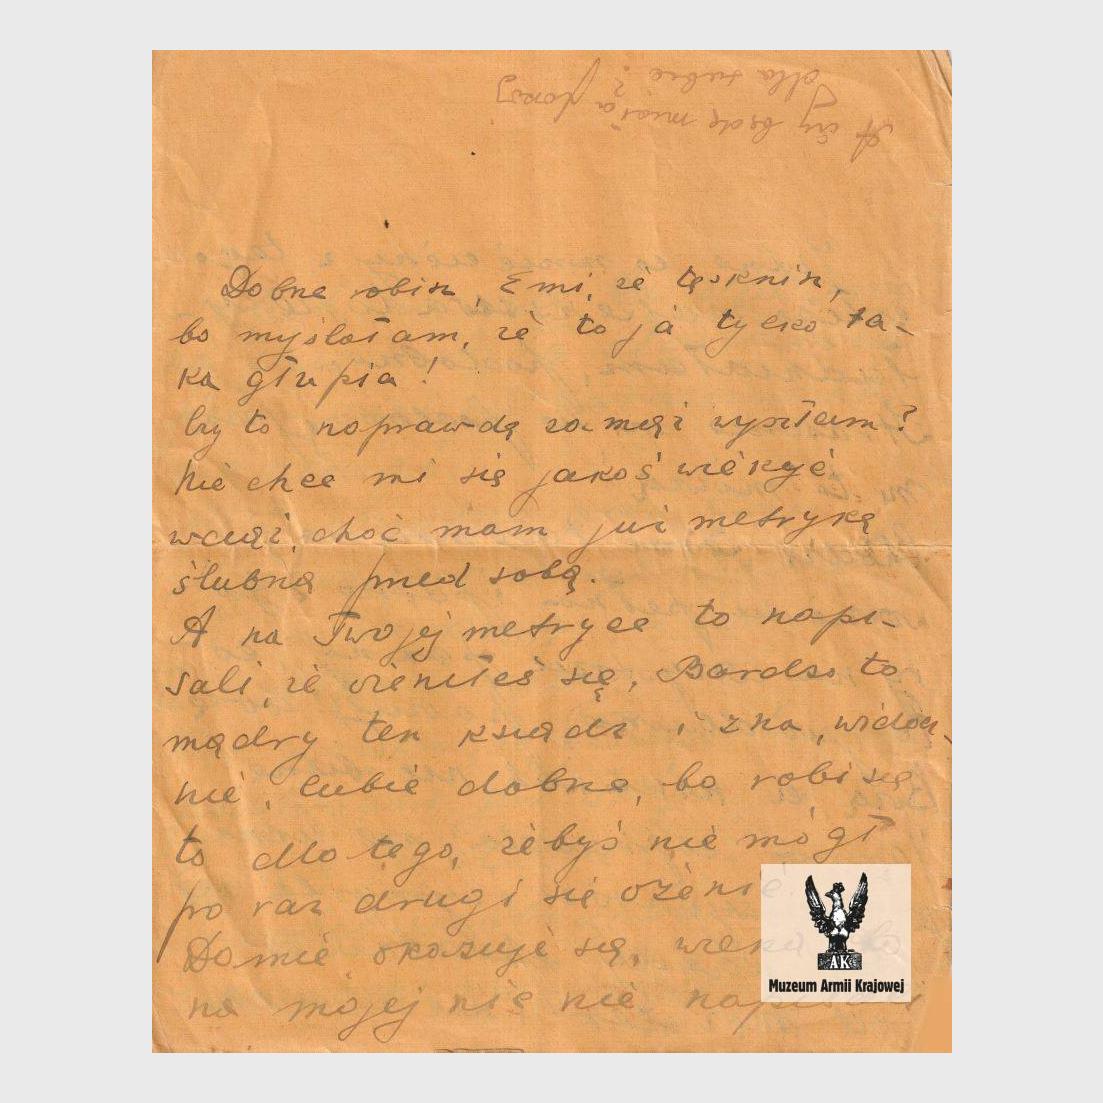 A czy będę miała pokoj
dla siebie?
Dobrze robisz Emi, że tęsknisz,
bo myślałam, że to ja tylko ta-
ka głupia!
Czy to naprawdę za mąż wyszłam?
Nie chce mi się jakoś wierzyć
wciąż, choć mam już metrykę
ślubną przed sobą.
A na Twojej metryce to napi-
sali, że ożeniłeś się. Bardzo to
mądry ten ksiądz i zna, widocz-
nie, ludzie dobrze, bo robi się
to dlatego, żebyś nie mógł
po raz drugi się ożenić.
Do mnie okazuje się,
na mojej nic nie napisali
Muzeum Armii Krajowej
AK